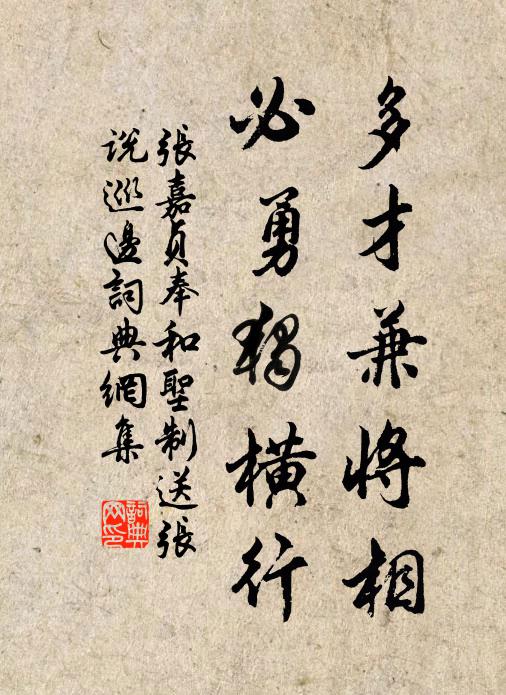 多才兼將相
必勇獨橫行
張嘉貞奉和聖制送張
說巡邊詞典網集
詞典
网印